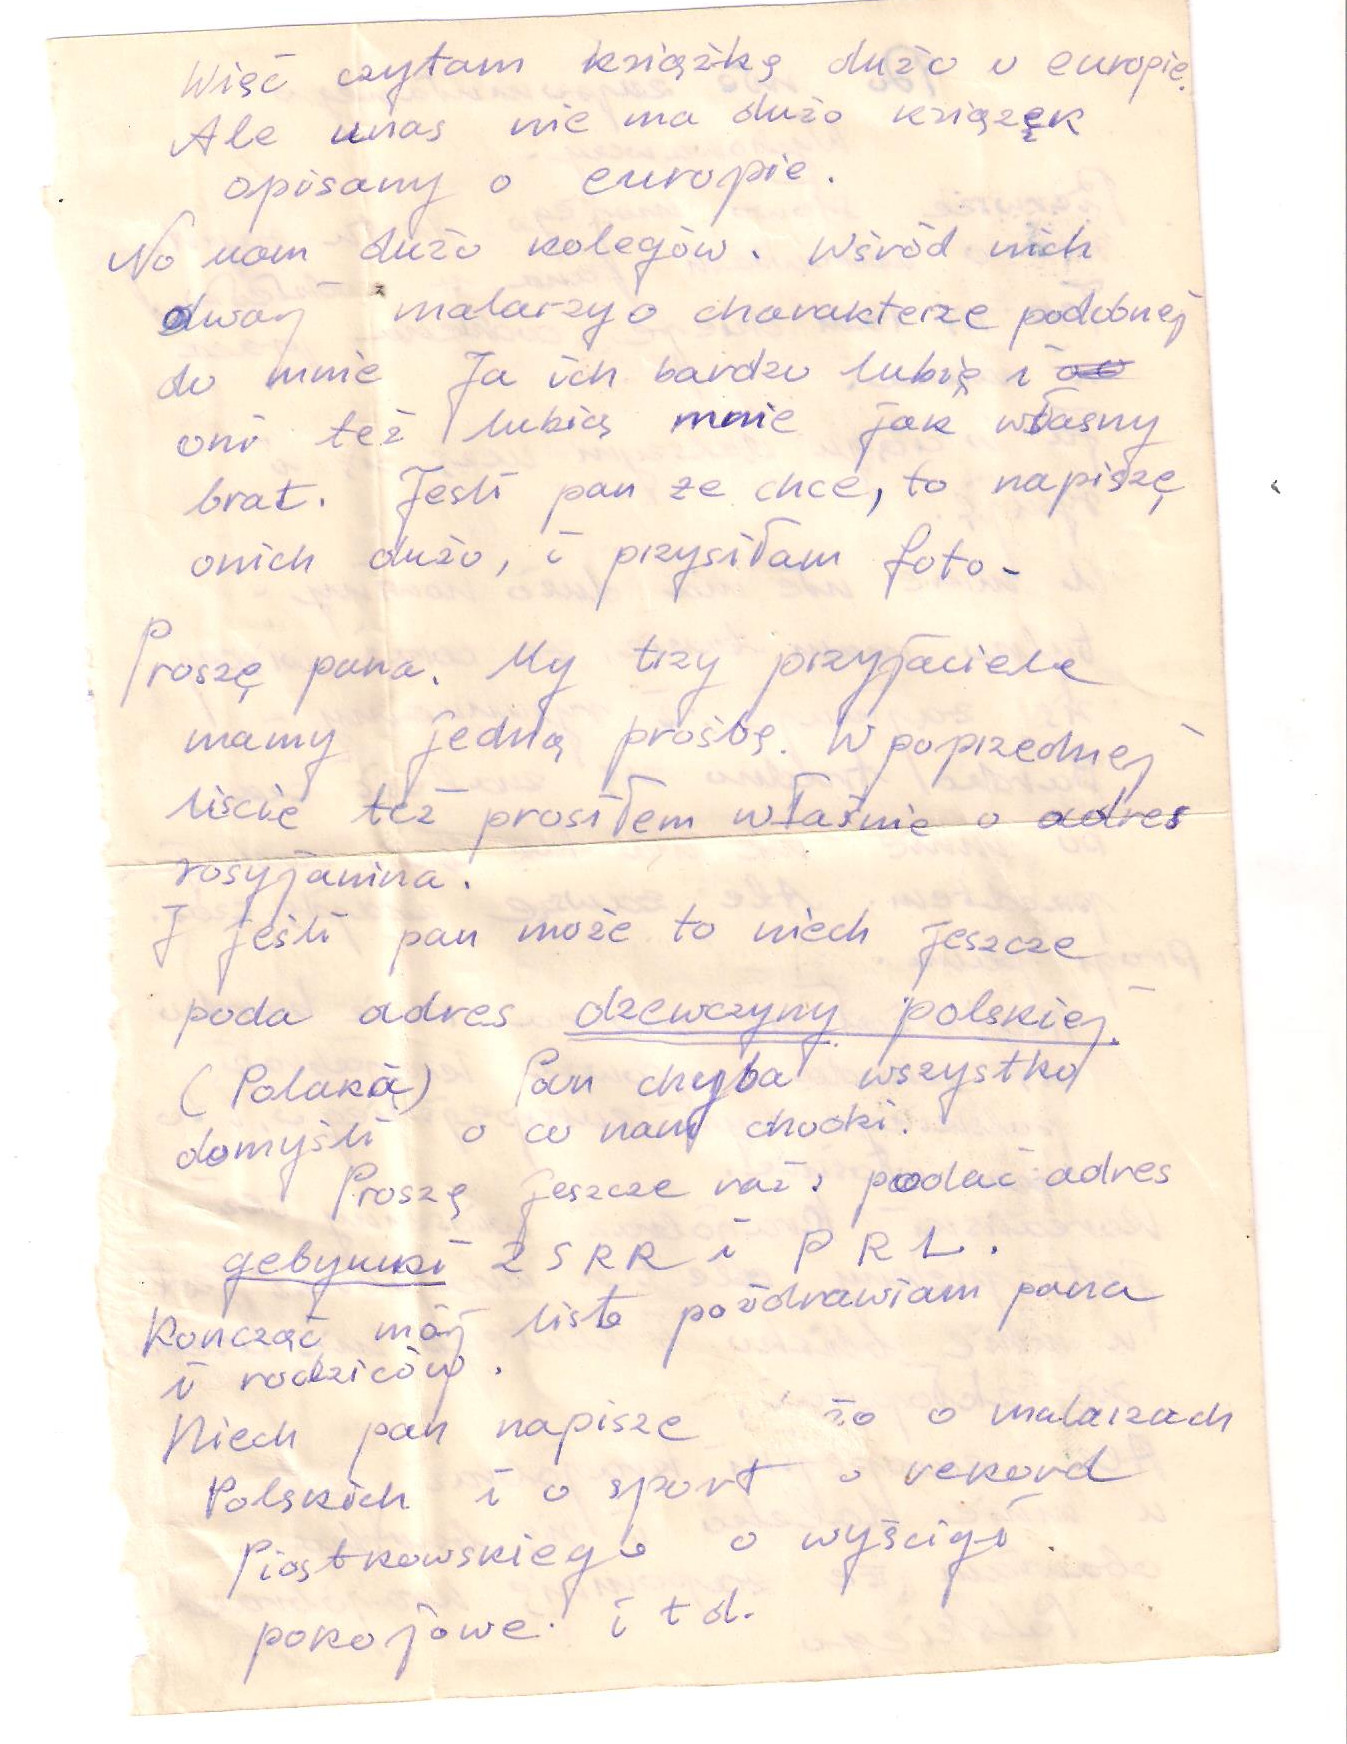 Więć czytam książkę dużo o europię.
Ale unas nie ma dużo książęk
opisany o europie.
No mam dużo kolegów. Wśród nich
dwaj malarzy o charakterze podobnej
do mnie Ja ich bardzo lubię i
oni też lubią mnie jak własny
brat. Jesli pan ze chce, to napiszę
onich dużo, i przysiłam foto-
Proszę pana. My trzy przyjaciele
mamy jedną prośbę. W poprzednej
liście też prosiłem właśnie o adres
rosyjanina.
J jeśli pan może to niech jeszcze
poda adres dzewczyny polskiej.
(Polaką) Pan chyba wszystko
domyśli o co nam chodzi.
Proszę jeszcze raź: podać adres
gebynki ZSRR i PRL.
Kończąć mój lista poźdrawiam pana
i rodziców.
Niech pan napisze żo o malarzach
Polskich i o sport o rekord
Piostkowskiego o wyścigi
pokojowe. i t d.